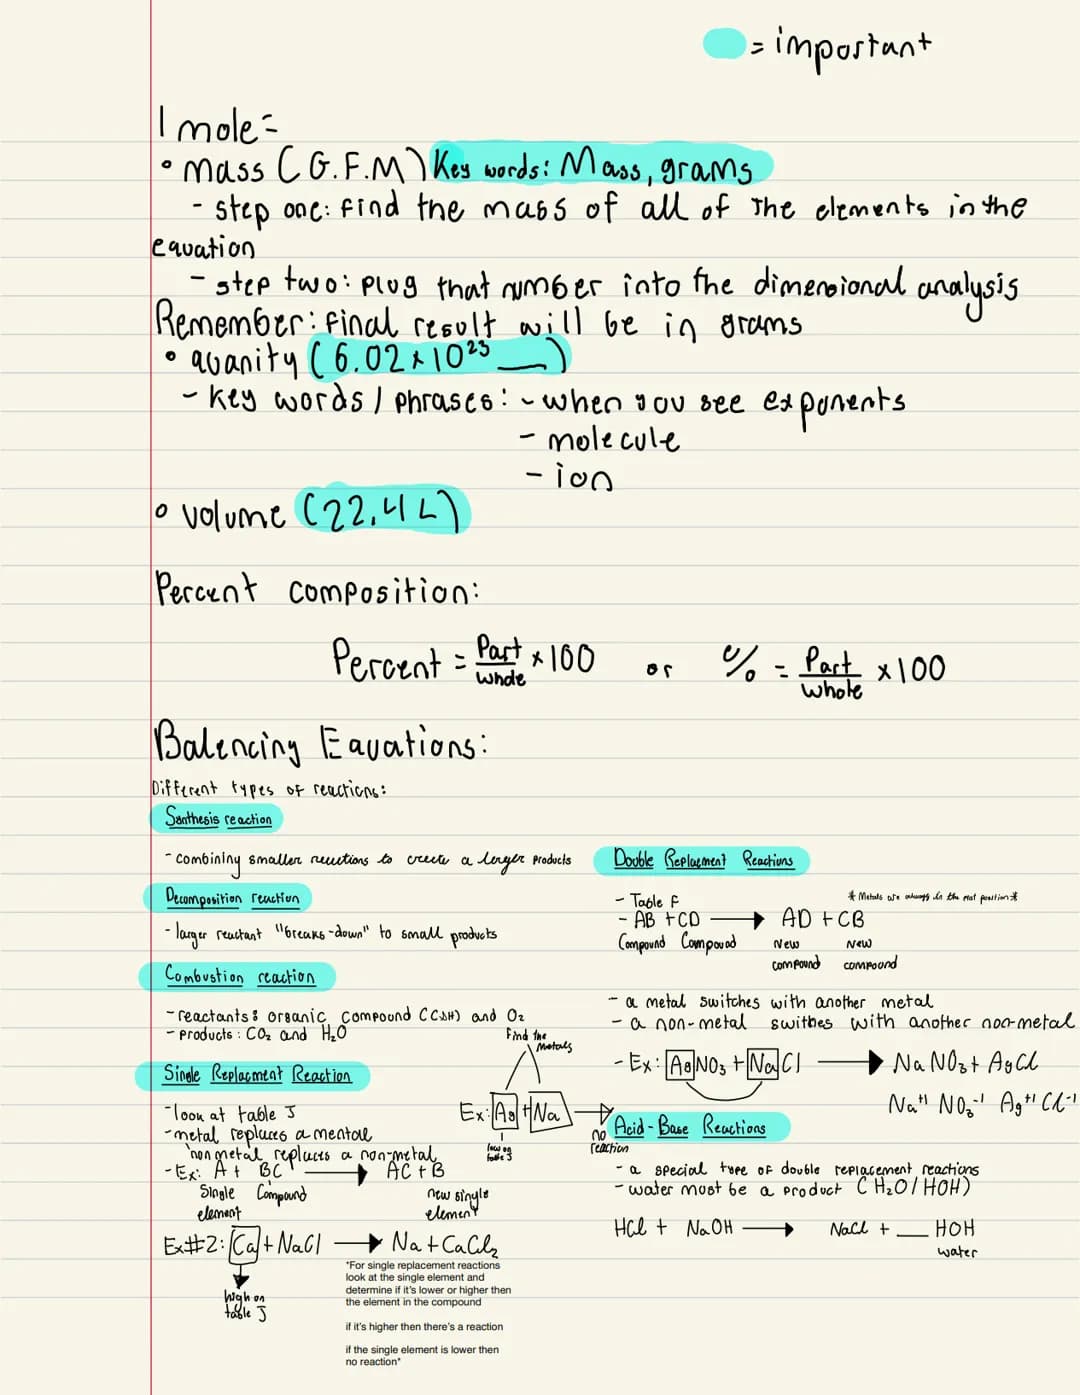 = important
1 mole =
• Mass (G.F.M) Key words: Mass, grams
- step one: find the mass of all of the elements in the
equation
- step two: plug that number into the dimensional analysis
Remember: final result will be in grams
• quanity (6.02 x 10²³ __)
- key words / phrases: - when you see exponents
- molecule
- ion
• volume (22.4 L)
Percent composition:
Percent = Part/Whole x 100 or % = Part/Whole x 100
Balencing Equations:
Different types of reactions:
Santhesis reaction
- combining smaller reactions to create a larger products
Decomposition reaction
- larger reactant "breaks-down" to small products
Combustion reaction
- reactants: organic compound (C&H) and O₂
- products: CO₂ and H₂O
Single Replacment Reaction
- look at table J
- metal replaces a mental
non metal replaces a non-metal
- Ex: A + BC → AC + B
Single element Compound new single element
Ex#2: Ca + NaCl → Na + CaCl₂
high on
table J
Find the
Metals
Ex: Ag + Na → no reaction
low on
table J
*For single replacement reactions
look at the single element and
determine if it's lower or higher then
the element in the compound
if it's higher then there's a reaction
if the single element is lower then
no reaction*
Double Replacment Reactions
- Table F
* Metals are always in the first position *
- AB + CD → AD + CB
Compound Compound New compound New compound
- a metal switches with another metal
- a non-metal swithes with another non-metal
- Ex: AgNO₃ + NaCl → NaNO₃ + AgCl
Na⁺¹ NO₃⁻¹ Ag⁺¹ Cl⁻¹
Acid-Base Reactions
- a special type of double replacement reactions
- water must be a product (H₂O/HOH)
HCl + NaOH → NaCl + __ HOH
water